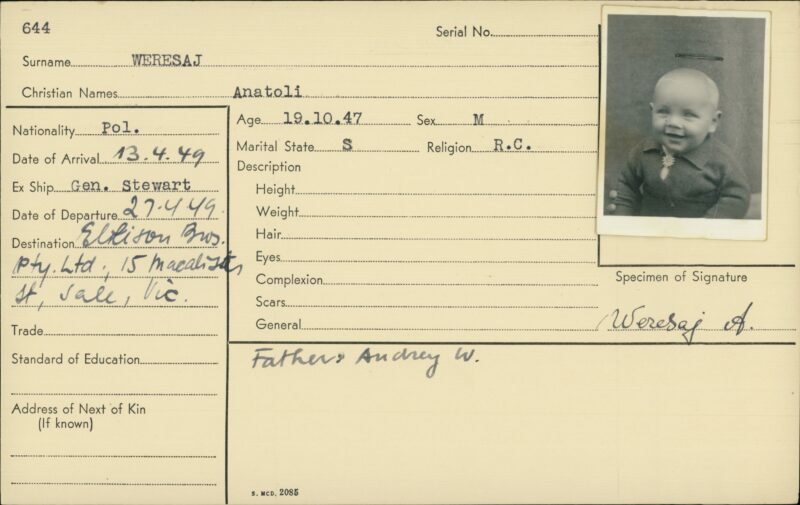 644
Serial No.
Surname WERESAJ
Christian Names Anatoli
Nationality Pol.
Date of Arrival 13.4.49
Ex Ship Gen. Stewart
Date of Departure 27.4.49.
Destination Ellison Bros.
Pty. Ltd., 15 Macalister
St, Sale, Vic.
Trade
Standard of Education
Address of Next of Kin
(If known)
Age 19.10.47 Sex M
Marital State S Religion R.C.
Description
Height
Weight
Hair
Eyes
Complexion
Scars
General
Specimen of Signature
Weresaj A.
Father: Andrey W.
S. MCD. 2085